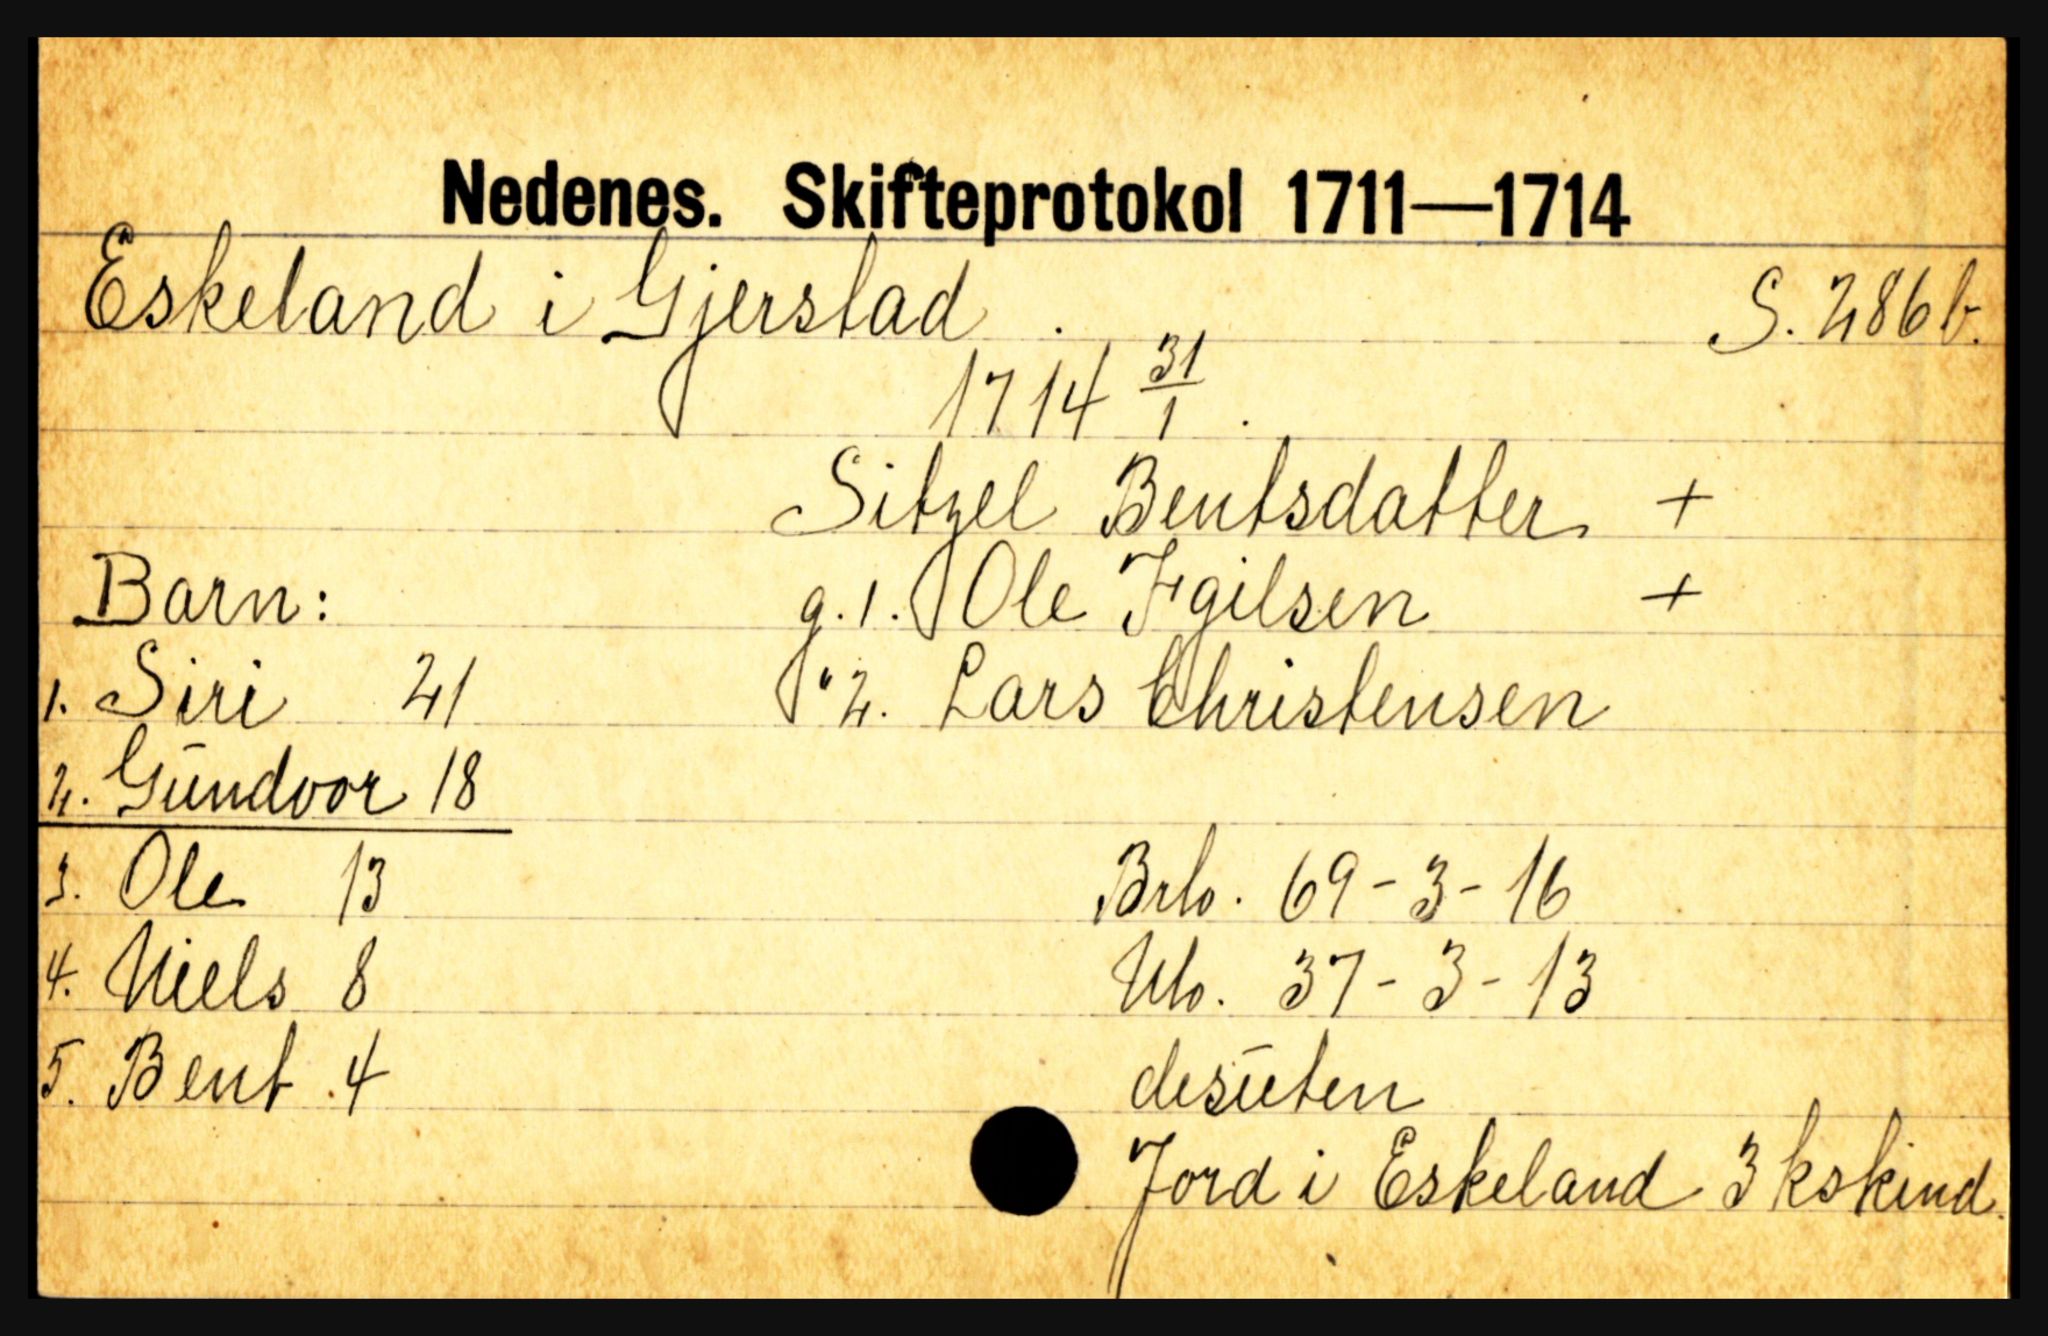 Nedenes. Skifteprotokol 1711—1714
Eskeland i Gjerstad. S. 286 b.
1714 31/1.
Sitzel Bentsdatter +
Barn: g. 1. Ole Egilsen +
1. Siri 21 " 2. Lars Christensen
2. Gundvor 18
3. Ole 13 Brto. 69-3-16
4. Niels 8 Nto. 37-3-13
5. Bent 4 desuten
Jord i Eskeland 3 kskind.